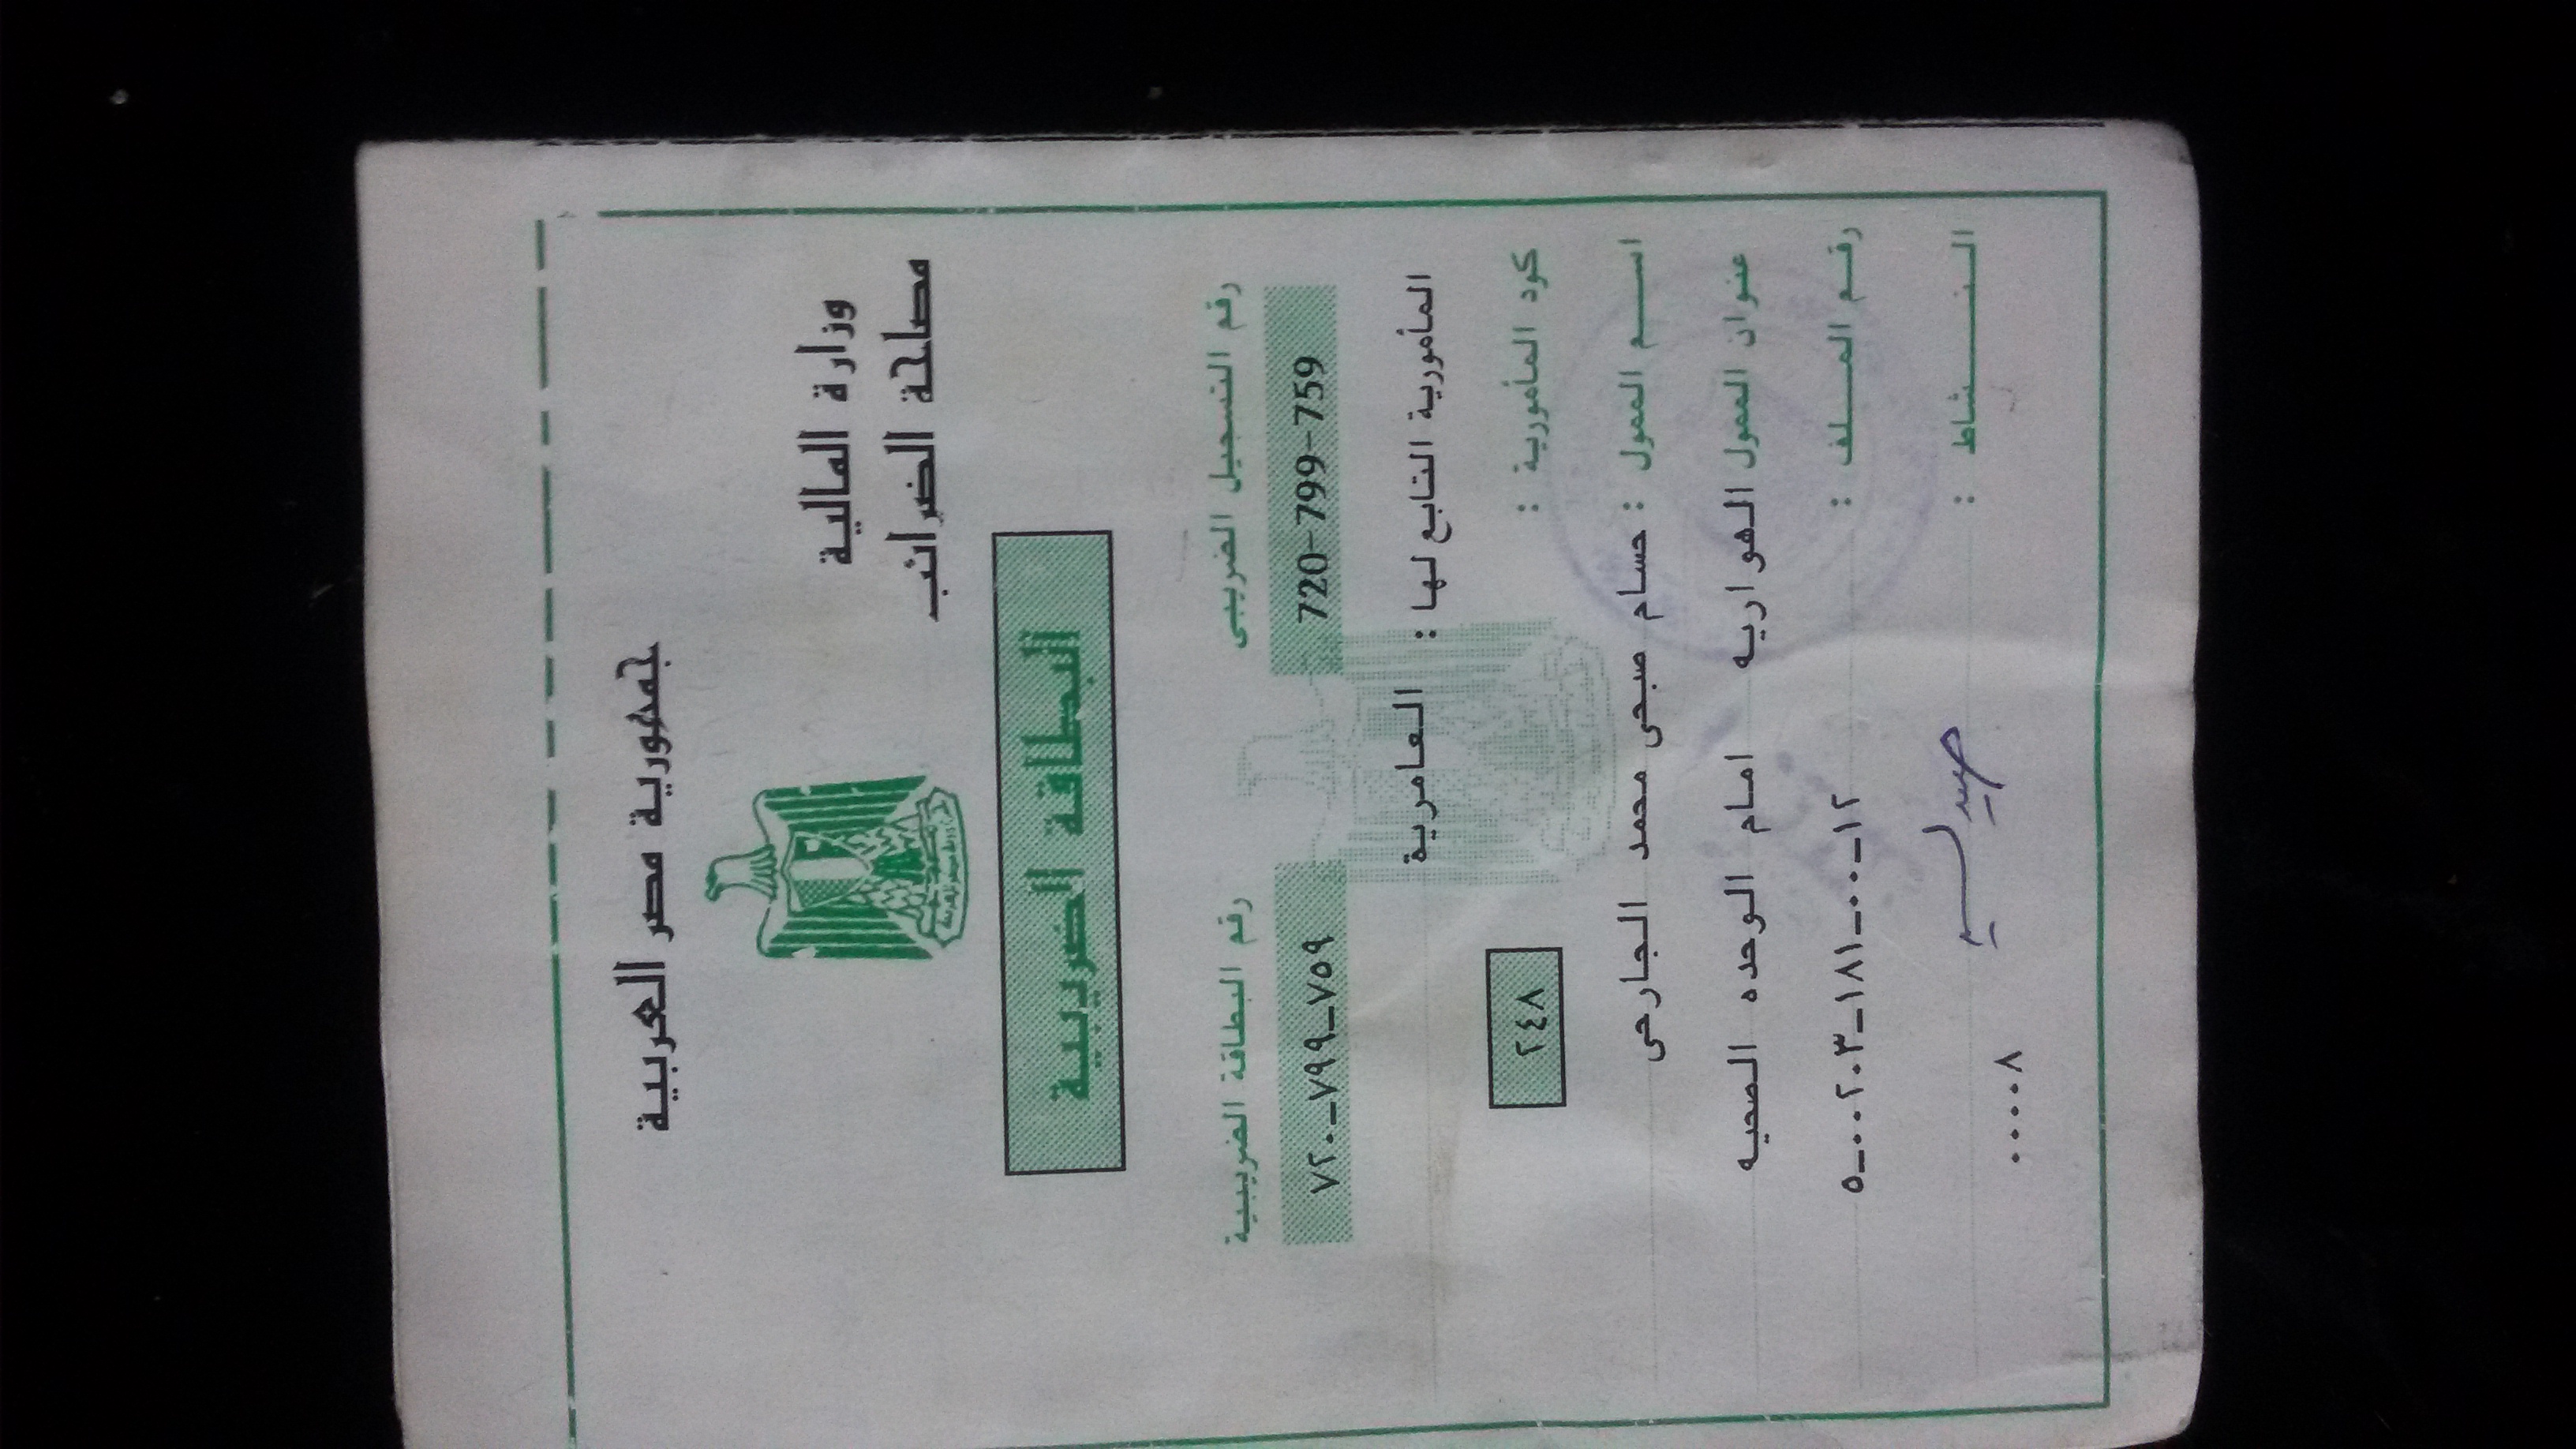 جمهورية مصر العربية
وزارة المالية
مصلحة الضرائب
البطاقة الضريبية
رقم التسجيل الضريبى رقم البطاقة الضريبية
720-799-759 ٧٢٠-٧٩٩-٧٥٩
المأمورية التابع لها : العامرية
كود المأمورية : ٢٤٨
اسم الممول : حسام صبحى محمد الجارحى
عنوان الممول الهواريه امام الوحده الصحيه
رقم الملف : ٥-٠٠٢٠٣-١٨١-٠٠-١٢
النشاط :
٠٠٠٠٨